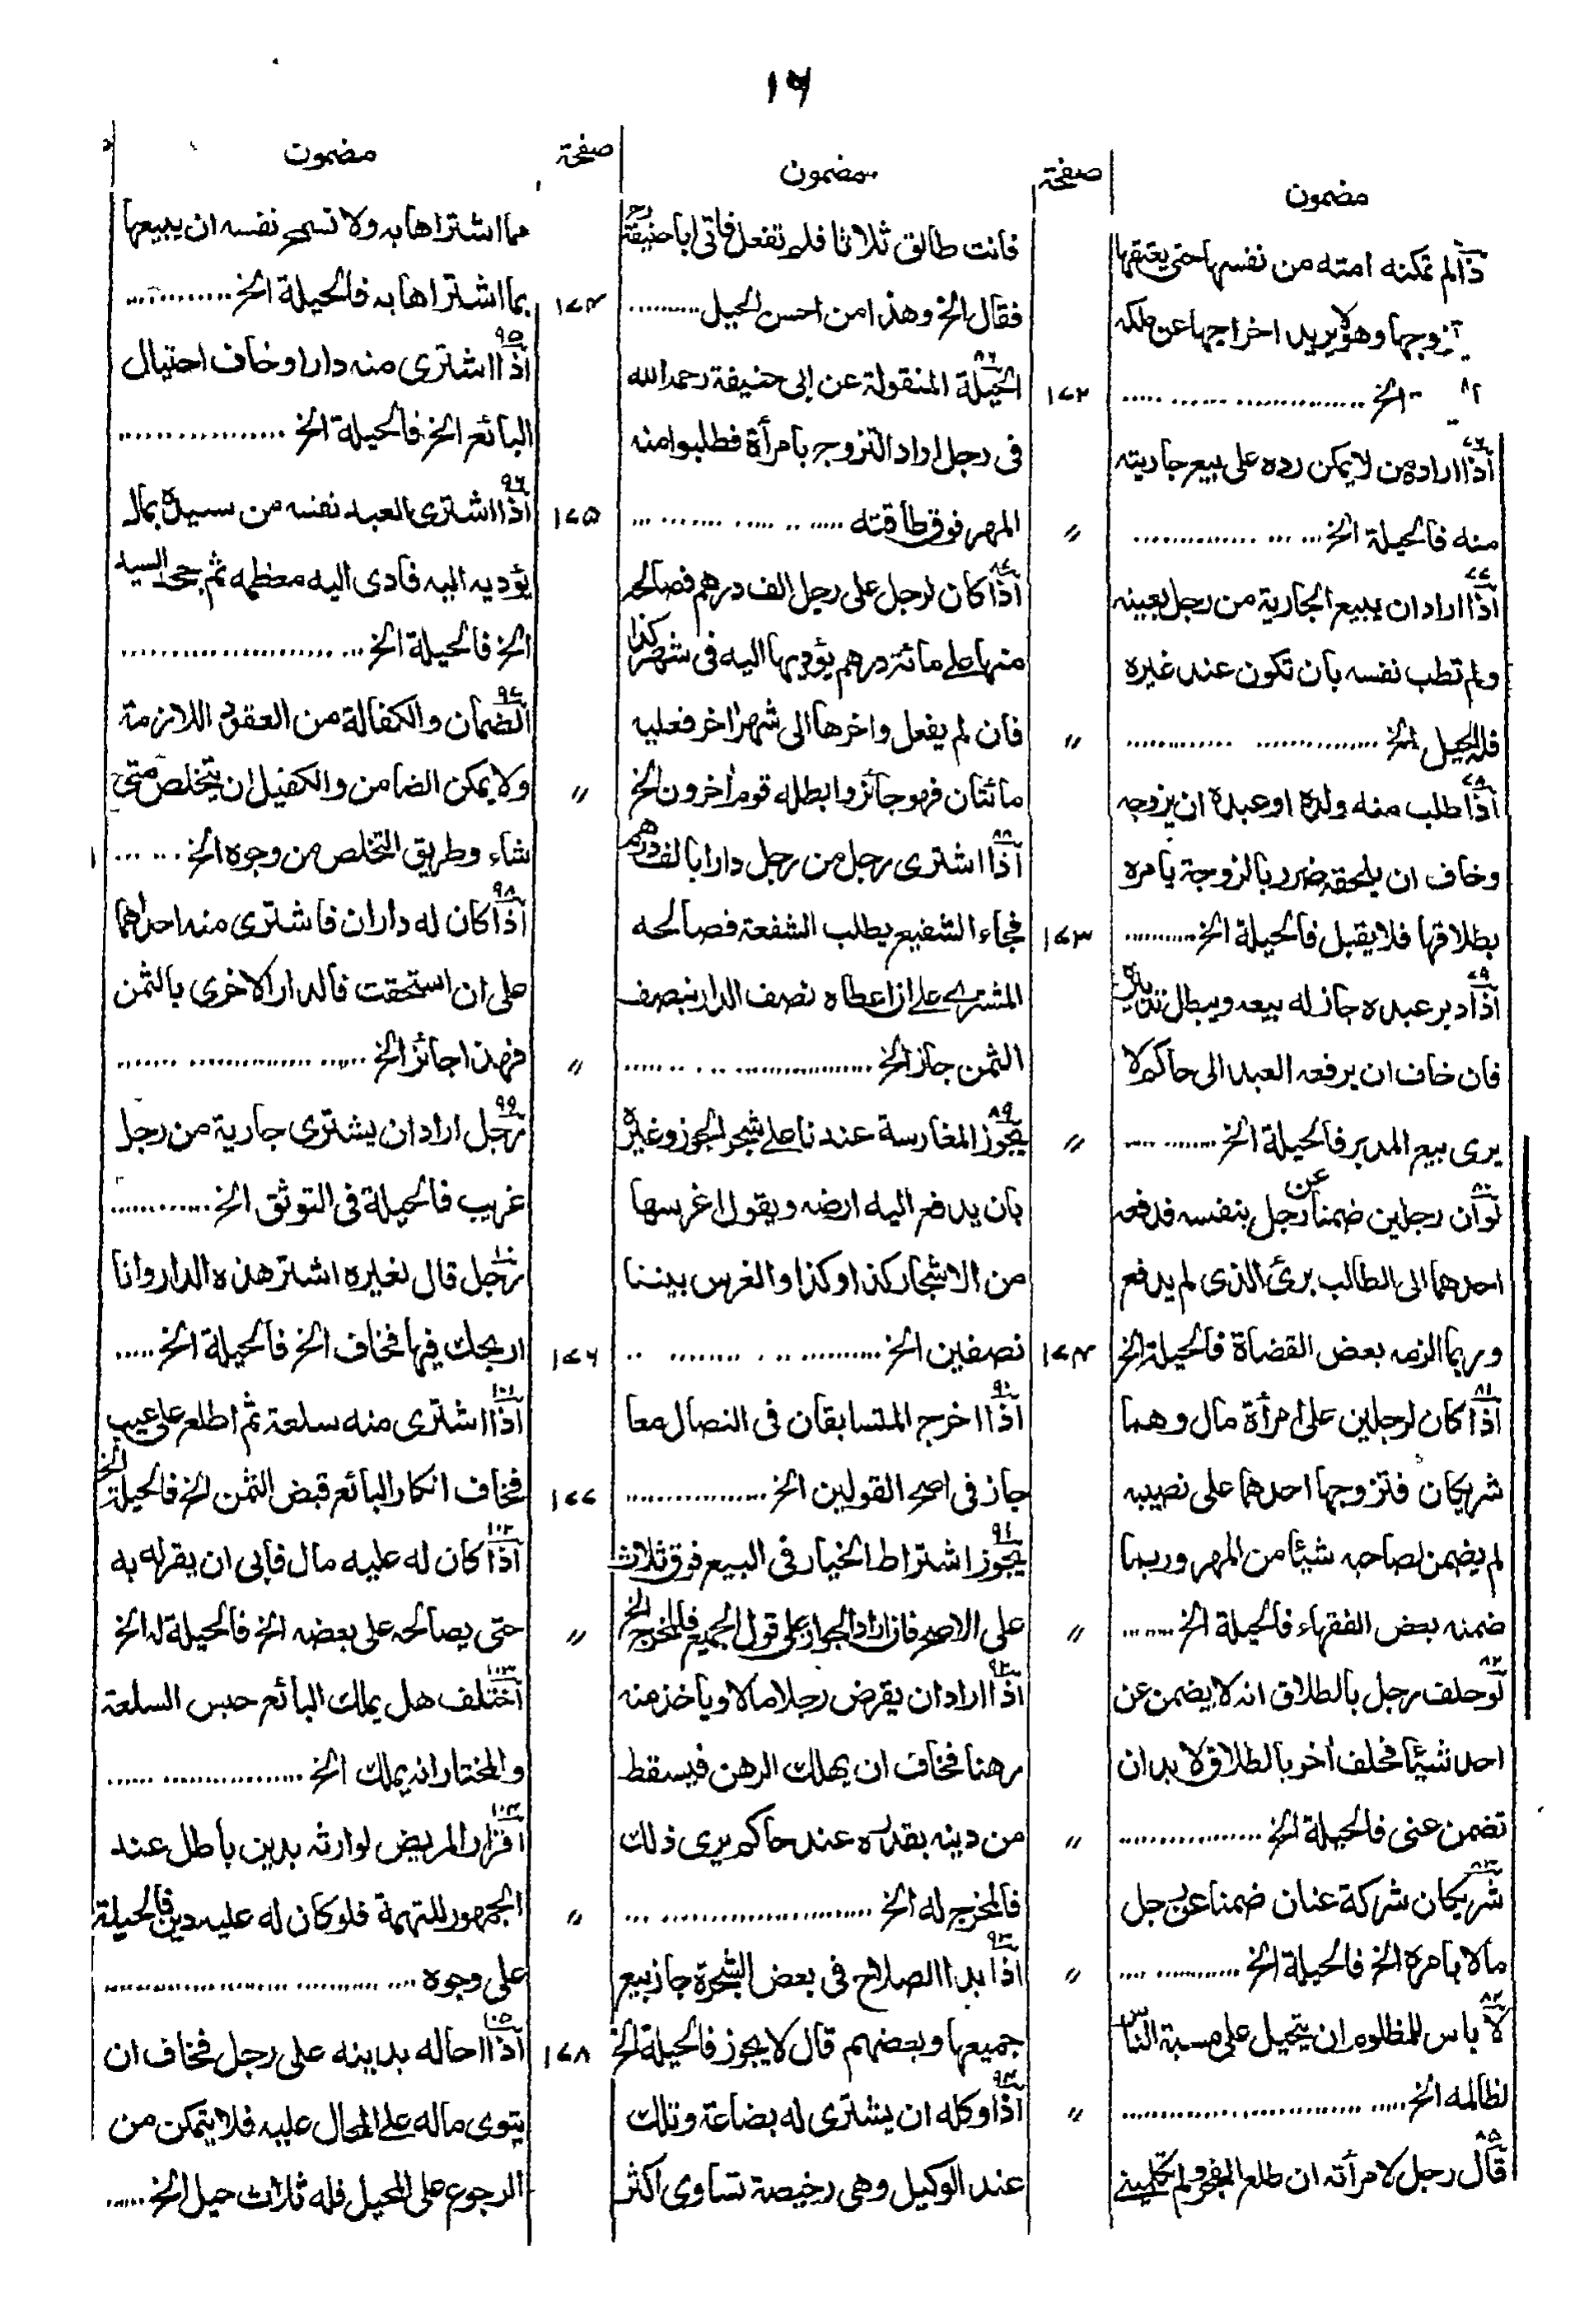 ١٦
مضمون
ذا لم تمكنه امته من نفسها حتى يعتقها
زوجها وهو لا يريد اخراجها عن ملكه
الخ
٧٦ اذا اراد من لا يمكن رده على بيع جاريته
منه فالحيلة الخ
٧٧ اذا اراد ان يبيع الجارية من رجل بعينه
ولم تطب نفسه بان تكون عند غيره
فله الحيل الخ
٧٨ اذا طلب منه ولده او عبده ان يزوجه
وخاف ان يلحقه ضرر بالزوجة يامره
بطلاقها فلا يقبل فالحيلة الخ
٧٩ اذا دبر عبده جاز له بيعه ويبطل تدبيره
فان خاف ان يرفعه العبد الى حاكم لا
يرى بيع المدبر فالحيلة الخ
٨٠ لو ان رجلين ضمنا عن رجل بنفسه فدفعه
احدهما الى الطالب برئ الذى لم يدفع
وربما الزمه بعض القضاة فالحيلة الخ
٨١ اذا كان لرجلين على امرأة مال وهما
شريكان فتزوجها احدهما على نصيبه
لم يضمن لصاحبه شيئا من المهر وربما
ضمنه بعض الفقهاء فالحيلة الخ
٨٢ لو حلف رجل بالطلاق انه لا يضمن عن
احد شيئا فحلف آخر بالطلاق لا بد ان
تضمن عنى فالحيلة الخ
٨٣ شريكان شركة عنان ضمنا عن رجل
مالا بامره الخ فالحيلة الخ
٨٤ لا باس للمظلوم ان يتحيل على مسبة الناس
لظالمه الخ
٨٥ قال رجل لامرأته ان طلع الفجر ولم تكلمينى
صفحة
١٧٢
〃
〃
١٧٣
〃
١٧٤
〃
〃
〃
〃
مضمون
فانت طالق ثلاثا فلم تفعل فاتى ابا حنيفة رح
فقال الخ وهذا من احسن الحيل
٨٦ الحيلة المنقولة عن ابى حنيفة رحمه الله
فى رجل اراد التزوج بامرأة فطلبوا منه
المهر فوق طاقته
٨٧ اذا كان لرجل على رجل الف درهم فصالحه
منها على مائة درهم يؤديها اليه فى شهر كذا
فان لم يفعل واخرها الى شهر آخر فعليه
مائتان فهو جائز وابطله قوم آخرون الخ
٨٨ اذا اشترى رجل من رجل دارا بالف درهم
فجاء الشفيع يطلب الشفعة فصالحه
المشترى على ان اعطاه نصف الدار بنصف
الثمن جاز الخ
٨٩ يجوز المغارسة عندنا على شجر الجوز وغيره
بان يدفع اليه ارضه ويقول اغرسها
من الاشجار كذا وكذا والغرس بيننا
نصفين الخ
٩٠ اذا اخرج المتسابقان فى النصال معا
جاز فى اصح القولين الخ
٩١ يجوز اشتراط الخيار فى البيع فوق ثلاث
على الاصح فان اراد الجواز على قول الجميع فالمخرج الخ
٩٢ اذا اراد ان يقرض رجلا مالا وياخذ منه
رهنا فخاف ان يهلك الرهن فيسقط
من دينه بقدره عند حاكم يرى ذلك
فالمخرج له الخ
٩٣ اذا بدا الصلاح فى بعض الشجرة جاز بيع
جميعها وبعضهم قال لا يجوز فالحيلة الخ
٩٤ اذا وكله ان يشترى له بضاعة وتلك
عند الوكيل وهى رخيصة تساوى اكثر
صفحة
١٧٤
١٧٥
〃
〃
١٧٦
١٧٧
〃
〃
١٧٨
مضمون
مما اشتراها به ولا تسمح نفسه ان يبيعها
بما اشتراها به فالحيلة الخ
٩٥ اذا اشترى منه دارا وخاف احتيال
البائع الخ فالحيلة الخ
٩٦ اذا اشترى العبد نفسه من سيده بمال
يؤديه اليه فادى اليه معظمه ثم جحد السيد
الخ فالحيلة الخ
٩٧ الضمان والكفالة من العقود اللازمة
ولا يمكن الضامن والكفيل ان يتخلص متى
شاء وطريق التخلص من وجوه الخ
٩٨ اذا كان له داران فاشترى منه احداهما
على ان استحقت فالدار الاخرى بالثمن
فهذا جائز الخ
٩٩ رجل اراد ان يشترى جارية من رجل
غريب فالحيلة فى التوثق الخ
١٠٠ رجل قال لغيره اشتر هذه الدار وانا
اربحك فيها فخاف الخ فالحيلة الخ
١٠١ اذا اشترى منه سلعة ثم اطلع على عيب
فخاف انكار البائع قبض الثمن الخ فالحيلة الخ
١٠٢ اذا كان له عليه مال فابى ان يقر له به
حتى يصالحه على بعضه الخ فالحيلة له الخ
١٠٣ اختلف هل يملك البائع حبس السلعة
والمختار انه يملك الخ
١٠٤ اقرار المريض لوارثه بدين باطل عند
الجمهور للتهمة فلو كان له عليه دين فالحيلة
على وجوه
١٠٥ اذا احاله بدينه على رجل فخاف ان
يتوى ماله على المحال عليه فلا يتمكن من
الرجوع على المحيل فله ثلاث حيل الخ